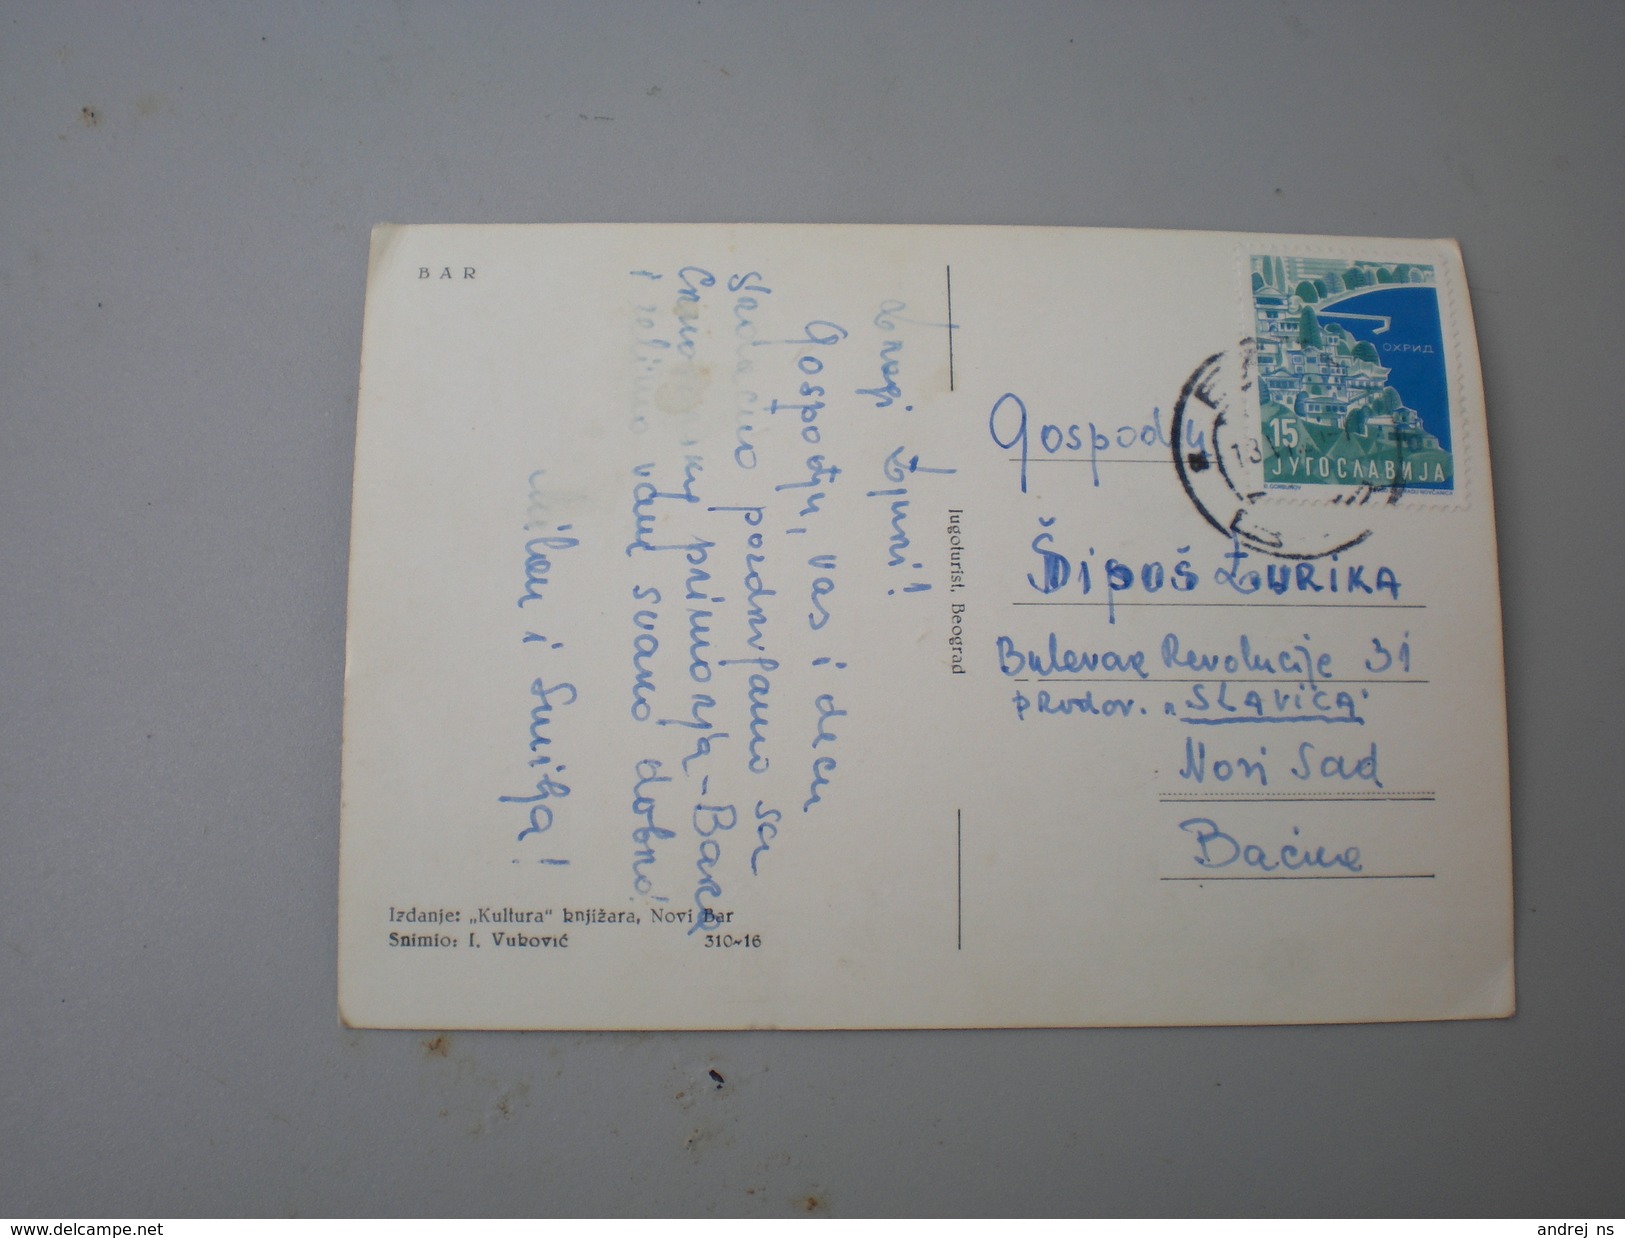 BAR
Dragi
Gospodju, vas i decu
srdačno pozdravljamo sa
primorja - Bara
i želimo vam svako dobro!
Milan i
Izdanje: „Kultura" knjižara, Novi Bar
Snimio: I. Vuković 310~16
Jugoturist, Beograd
ОХРИД
15
ЈУГОСЛАВИЈА
Gospodju
Šipoš
Bulevar Revolucije 31
prodov. „SLAVICA"
Novi Sad
Bačka
www.delcampe.net
andrej ns